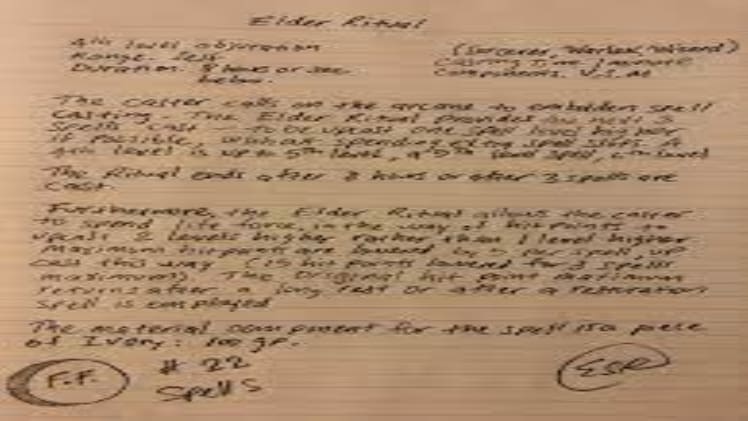 Elder Ritual
4th level abjuration (Sorcerer, Warlock, Wizard)
Range: Self Casting Time 1 minute
Duration: 8 hours or see Components: V, S, M
below.
The caster calls on the arcane to embolden spell
casting. The Elder Ritual provides the next 3
spells cast to be upcast one spell level higher
if possible, without spending extra spell slots. A
4th level is up to 5th level, a 9th level spell,
The Ritual ends after 8 hours or after 3 spells are
cast.
Furthermore, the Elder Ritual allows the caster
to spend life force, in the way of hit points to
upcast 2 levels higher rather than 1 level higher
maximum hit points are lowered by 5 per spell, up
cast this way. (15 hit points lowered for 3 spells
maximum). The Original hit point maximum
returns after a long rest or after a restoration
spell is employed
The material component for the spell is a piece
of Ivory: 100 gp.
F.F. # 22
Spells
ESR